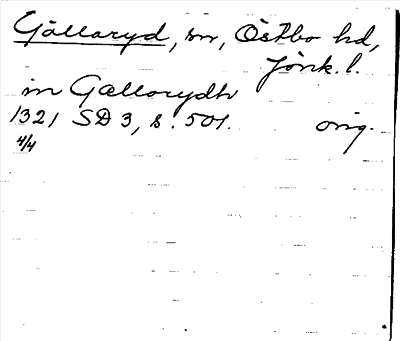 Gällaryd, sn, Östbo hd,
Jönk. l.
in Gællarydh
1321 SD 3, s. 501. orig.
4/4